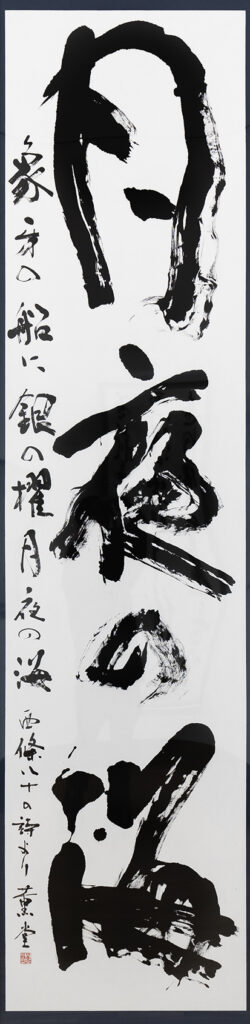 月夜の海
象牙の船に銀の櫂月夜の海 西條八十の詩より 薫堂